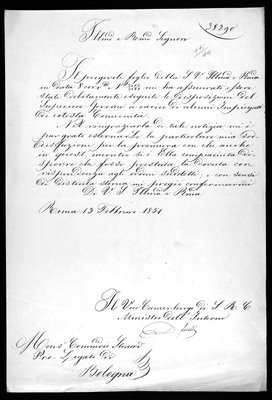 38290
Illmo e Rmo Signore
Il pregevole foglio della S. V. Illma e Rma
in data 8 corre. N. mi ha assicurato essere
state debitamente eseguite le disposizioni del
Superior Governo a carico di alcuni Impiegati
di cotesta Comunità.
Nel ringraziarla di tale notizia mi è
pur grato esternarle la particolare mia sod-
disfazione per la premura con che anche
in quest' incontro si è Ella compiaciuta di-
sporre che fosse prestata la dovuta cor-
rispondenza agli ordini suddetti, e con sensi
di distinta stima mi pregio confermarmi
Di V. S. Illma e Rma
Roma 13 Febbraio 1851
Il Vice Camerlengo di S. R. C.
Ministro dell' Interno
Monsr Commissario
Pro-Legato di
Bologna